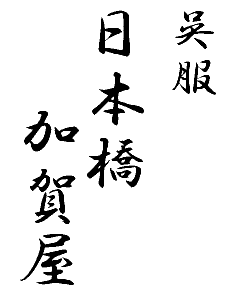 呉服
日本橋
加賀屋